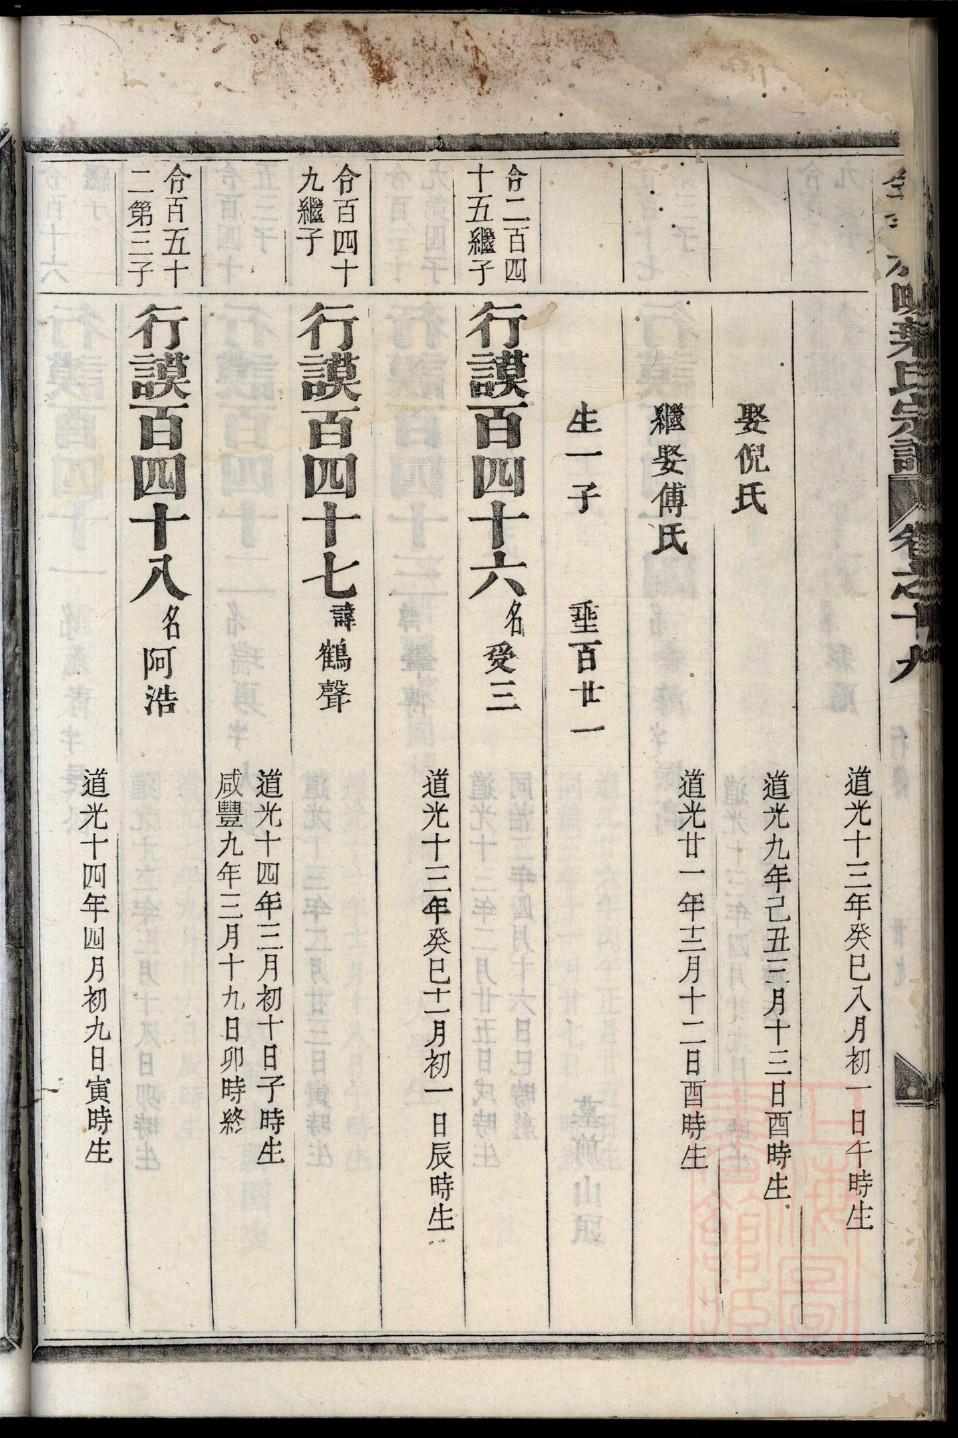 葉氏宗譜 卷之十九
道光十三年癸巳八月初一日午時生
娶倪氏
道光九年己丑三月十三日酉時生
繼娶傅氏
道光廿一年十二月十二日酉時生
生一子 垂百廿一
令二百四
十五繼子
行謨百四十六 名受三
道光十三年癸巳十二月初一日辰時生
令百四十
九繼子
行謨百四十七 諱鶴聲
道光十四年三月初十日子時生
咸豐九年三月十九日卯時終
令百五十
二第三子
行謨百四十八 名阿浩
道光十四年四月初九日寅時生